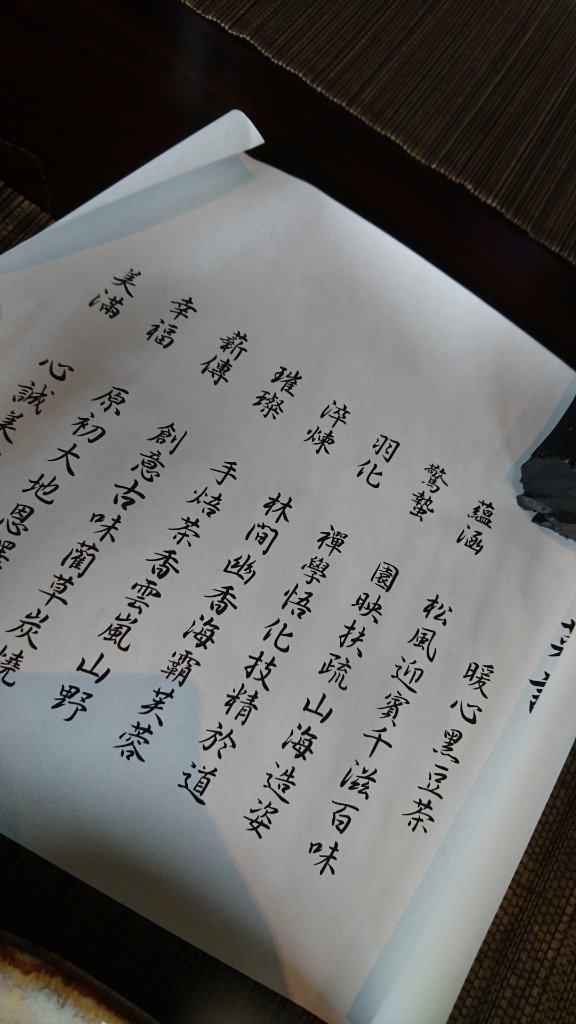 暖心黑豆茶
蘊涵 松風迎賓千滋百味
驚蟄 園映扶疏山海造姿
羽化 禪學悟化技精於道
淬煉 林間幽香海霸芙蓉
璀璨 手焙茶香雲嵐山野
薪傳 創意古味藺草炭燒
幸福 原初大地恩澤
美滿 心誠美